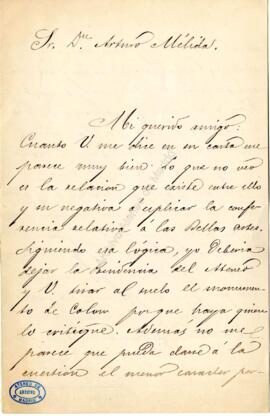 Sr. Dn. Arturo Mélida.
Mi querido amigo:
Cuanto V. me dice en su carta me
parece muy bien. Lo que no veo
es la relacion que existe entre ello
y su negativa á esplicar la confe-
rencia relativa á las Bellas Artes.
Siguiendo esa lógica, yo deberia
dejar la Presidencia del Ateneo
y V. tirar al suelo el monumen-
to de Colon porque haya quien
lo critique. Ademas no me
parece que pueda darse á la
cuestion el menor caracter per-
ATENEO DE
MADRID